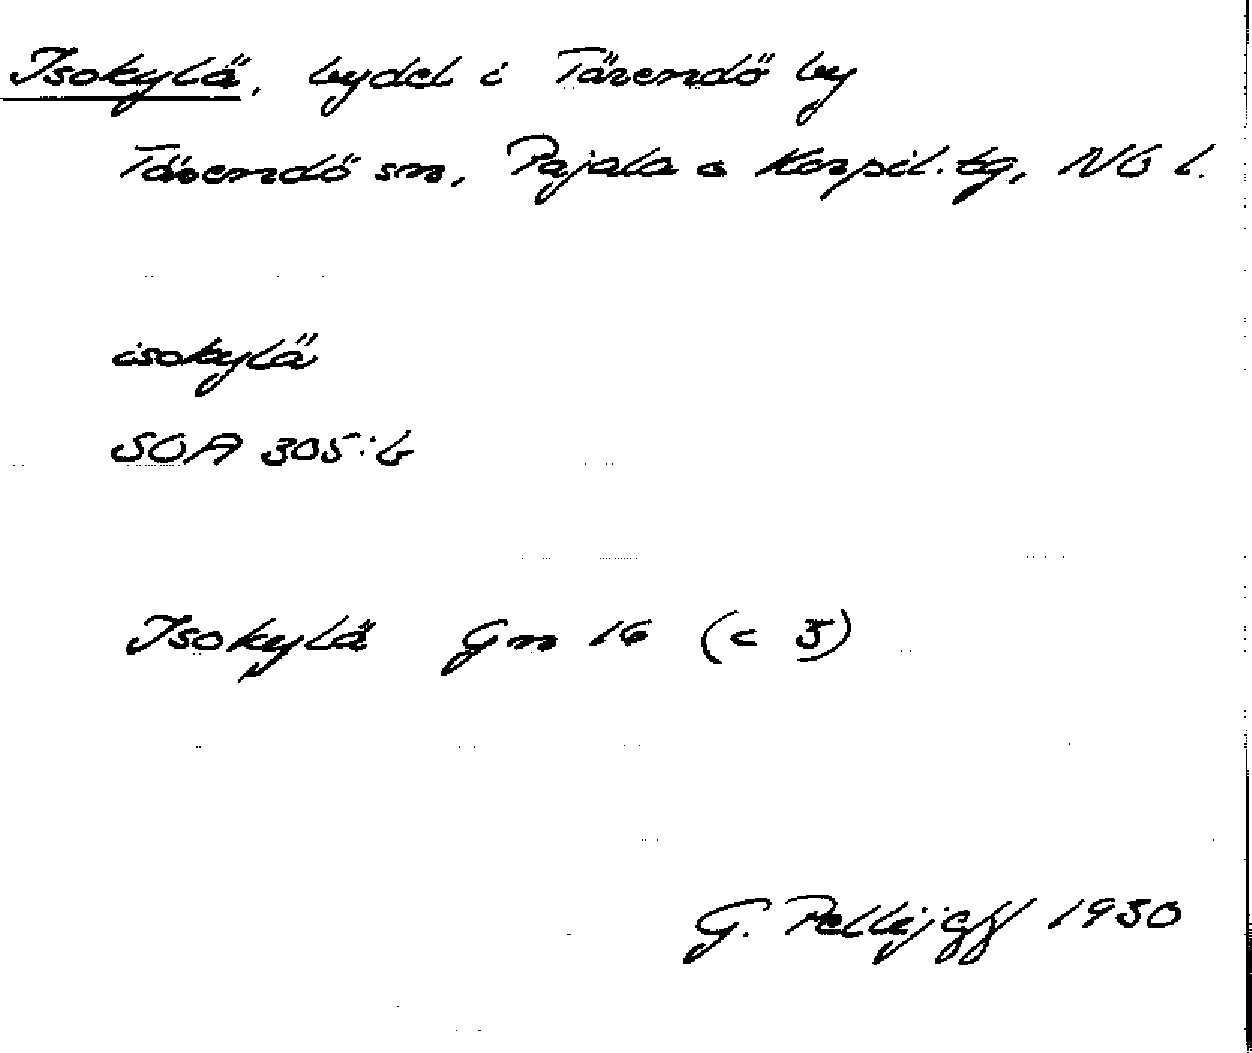 Isokylä, bydel i Tärendö by
Tärendö sn, Pajala o Korpil. tg, NB l.
isokylä
SOA 305:6
Isokylä Gm 16 (c 5)
G. Pellijeff 1950